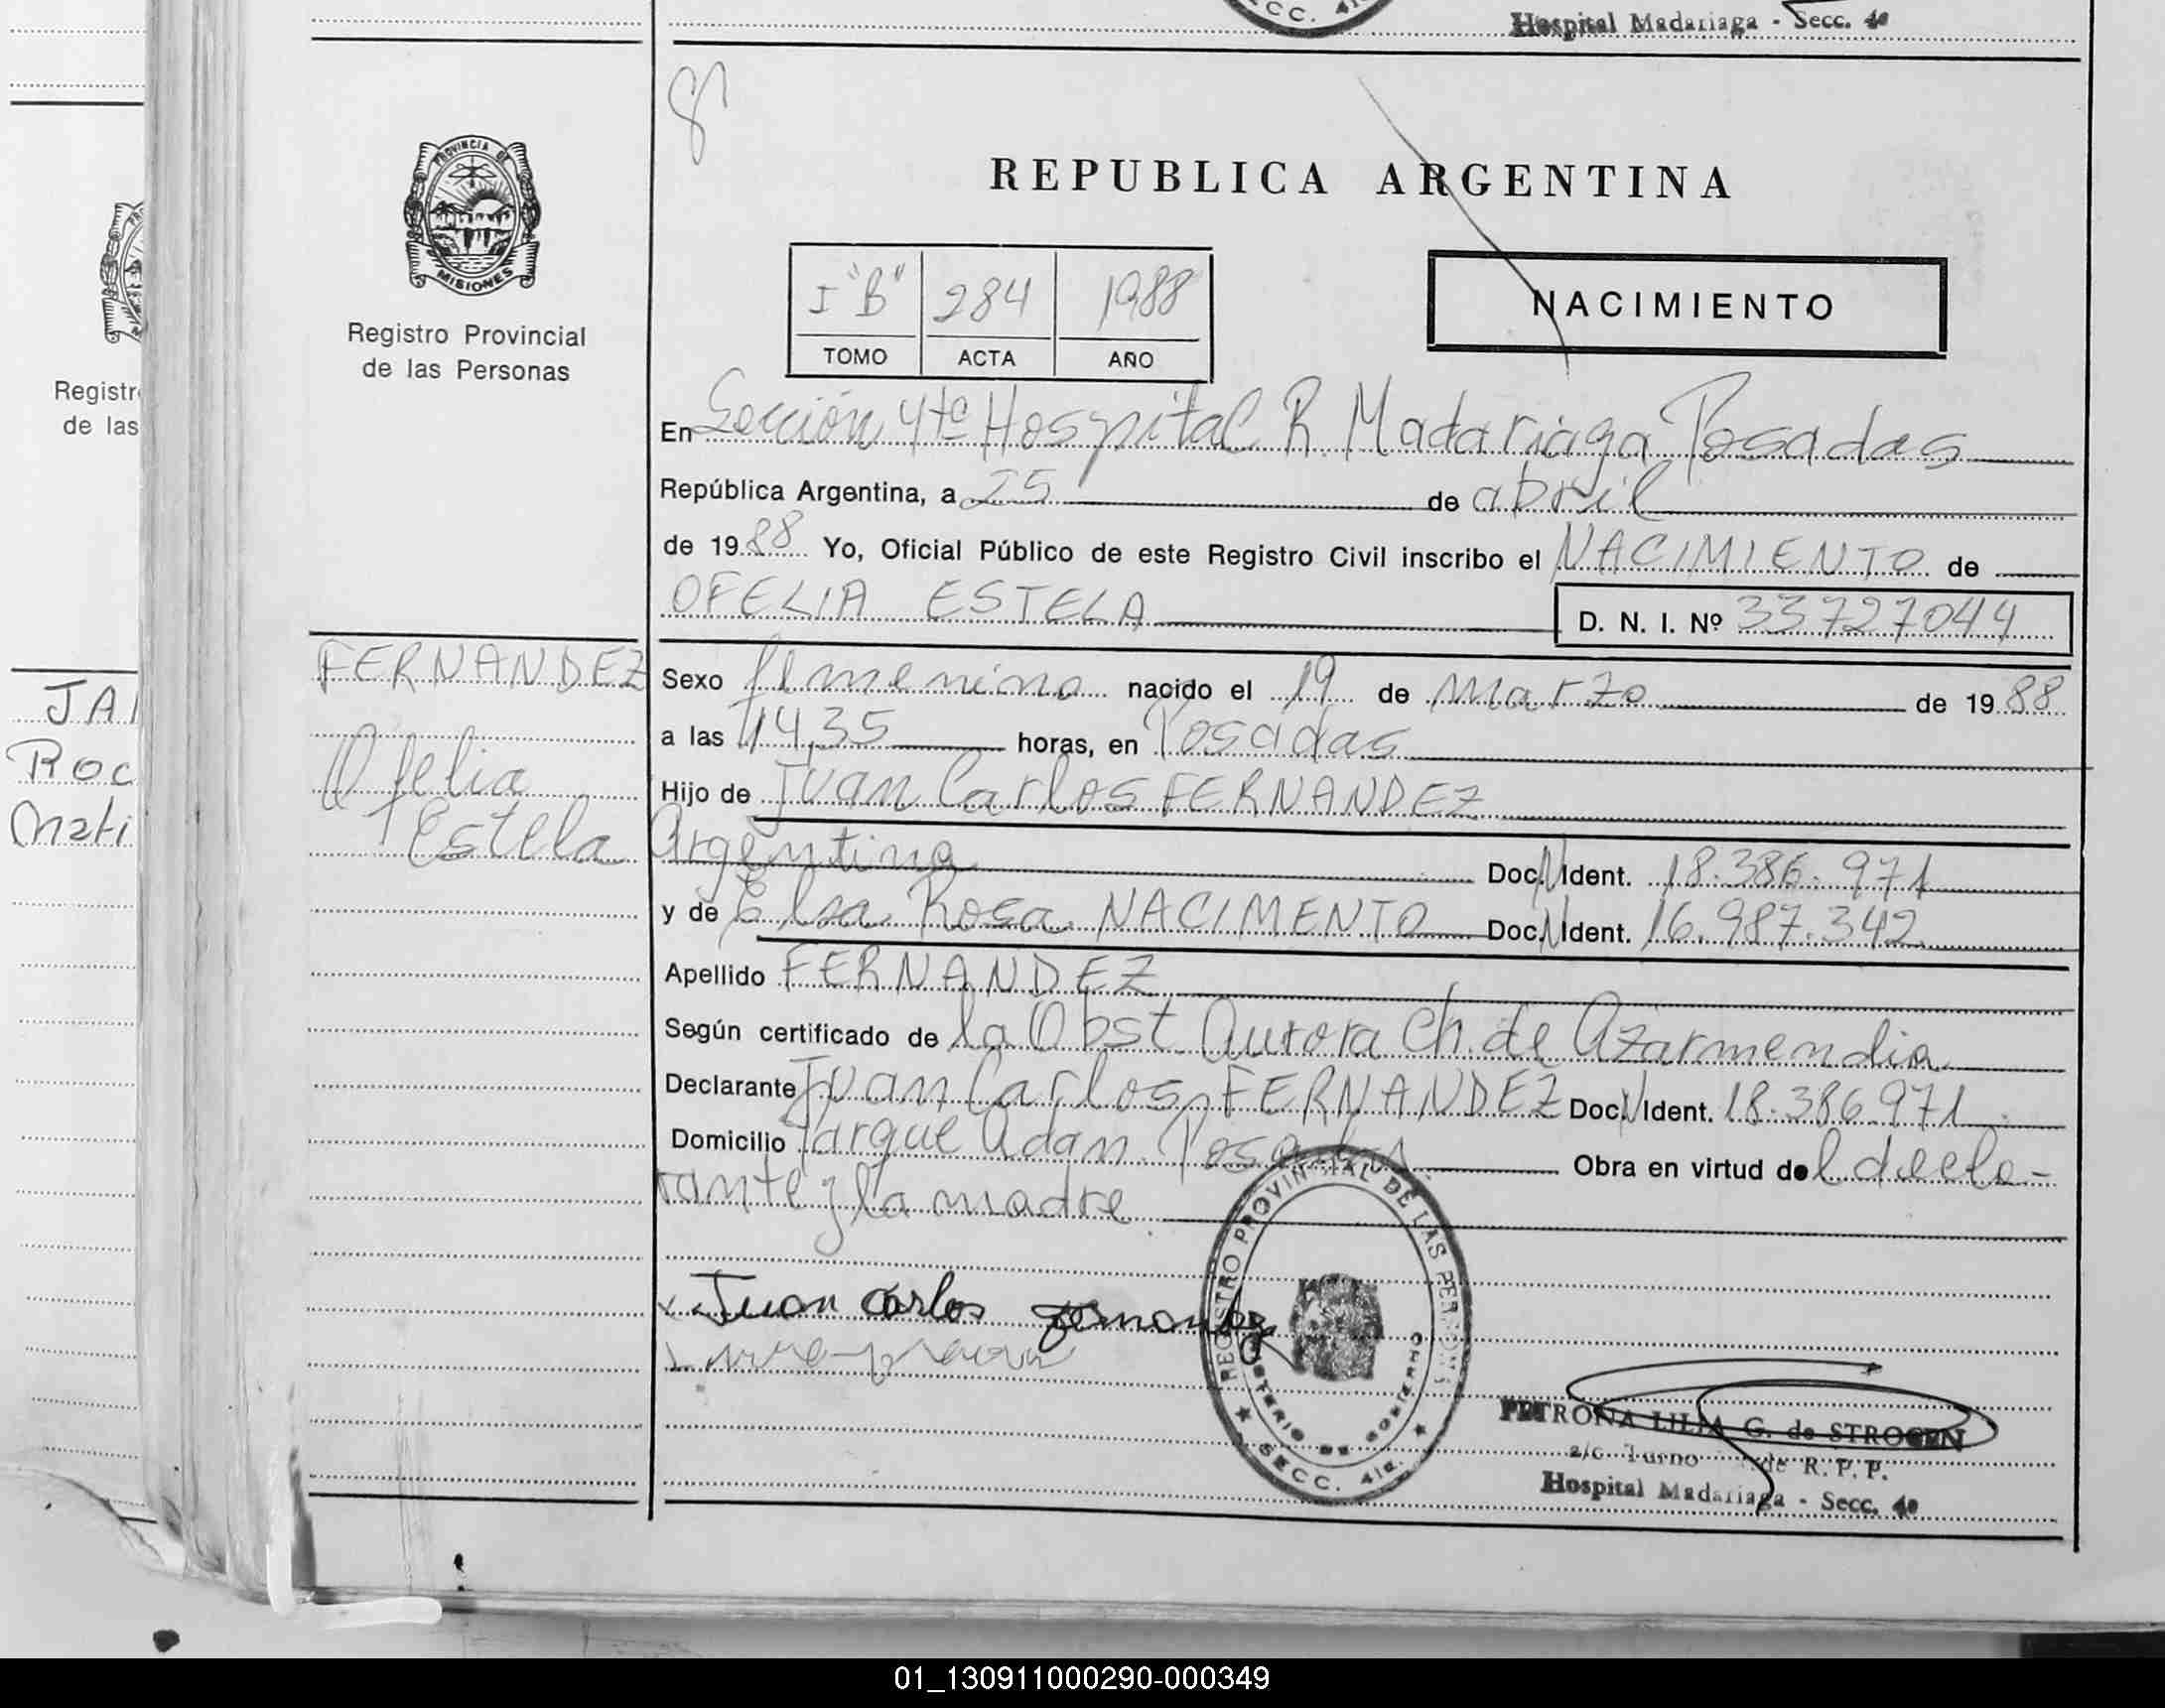 SECC. 4ta.
Hospital Madariaga - Secc. 4a
8
PROVINCIA DE
MISIONES
Registro Provincial
de las Personas
REPUBLICA ARGENTINA
I "B" 284 1988
TOMO ACTA AÑO
NACIMIENTO
Registr
de las
En Sección 4ta Hospital R. Madariaga Posadas
República Argentina, a 25 de abril
de 1988 Yo, Oficial Público de este Registro Civil inscribo el NACIMIENTO de
OFELIA ESTELA
D. N. I. Nº 33727044
FERNANDEZ
Ofelia
Estela
JA
Roc
Mati
Sexo femenino nacido el 19 de marzo de 1988
a las 14,35 horas, en Posadas
Hijo de Juan Carlos FERNANDEZ
Argentina Doc. N Ident. 18.386.971
y de Elsa Rosa NACIMENTO Doc. N Ident. 16.987.342
Apellido FERNANDEZ
Según certificado de la Obst. Aurora Ch. de Azarmendia
Declarante Juan Carlos FERNANDEZ Doc. N Ident. 18.386.971
Domicilio Parque Adam. Posadas Obra en virtud del decla-
rante y la madre.
Juan Carlos Fernandez
REGISTRO PROVINCIAL DE LAS PERSONAS
MINISTERIO DE GOBIERNO
SECC. 4ta.
PETRONA LILIA G. de STROGEN
a/c Turno de R. P. P.
Hospital Madariaga - Secc. 4a
01_130911000290-000349